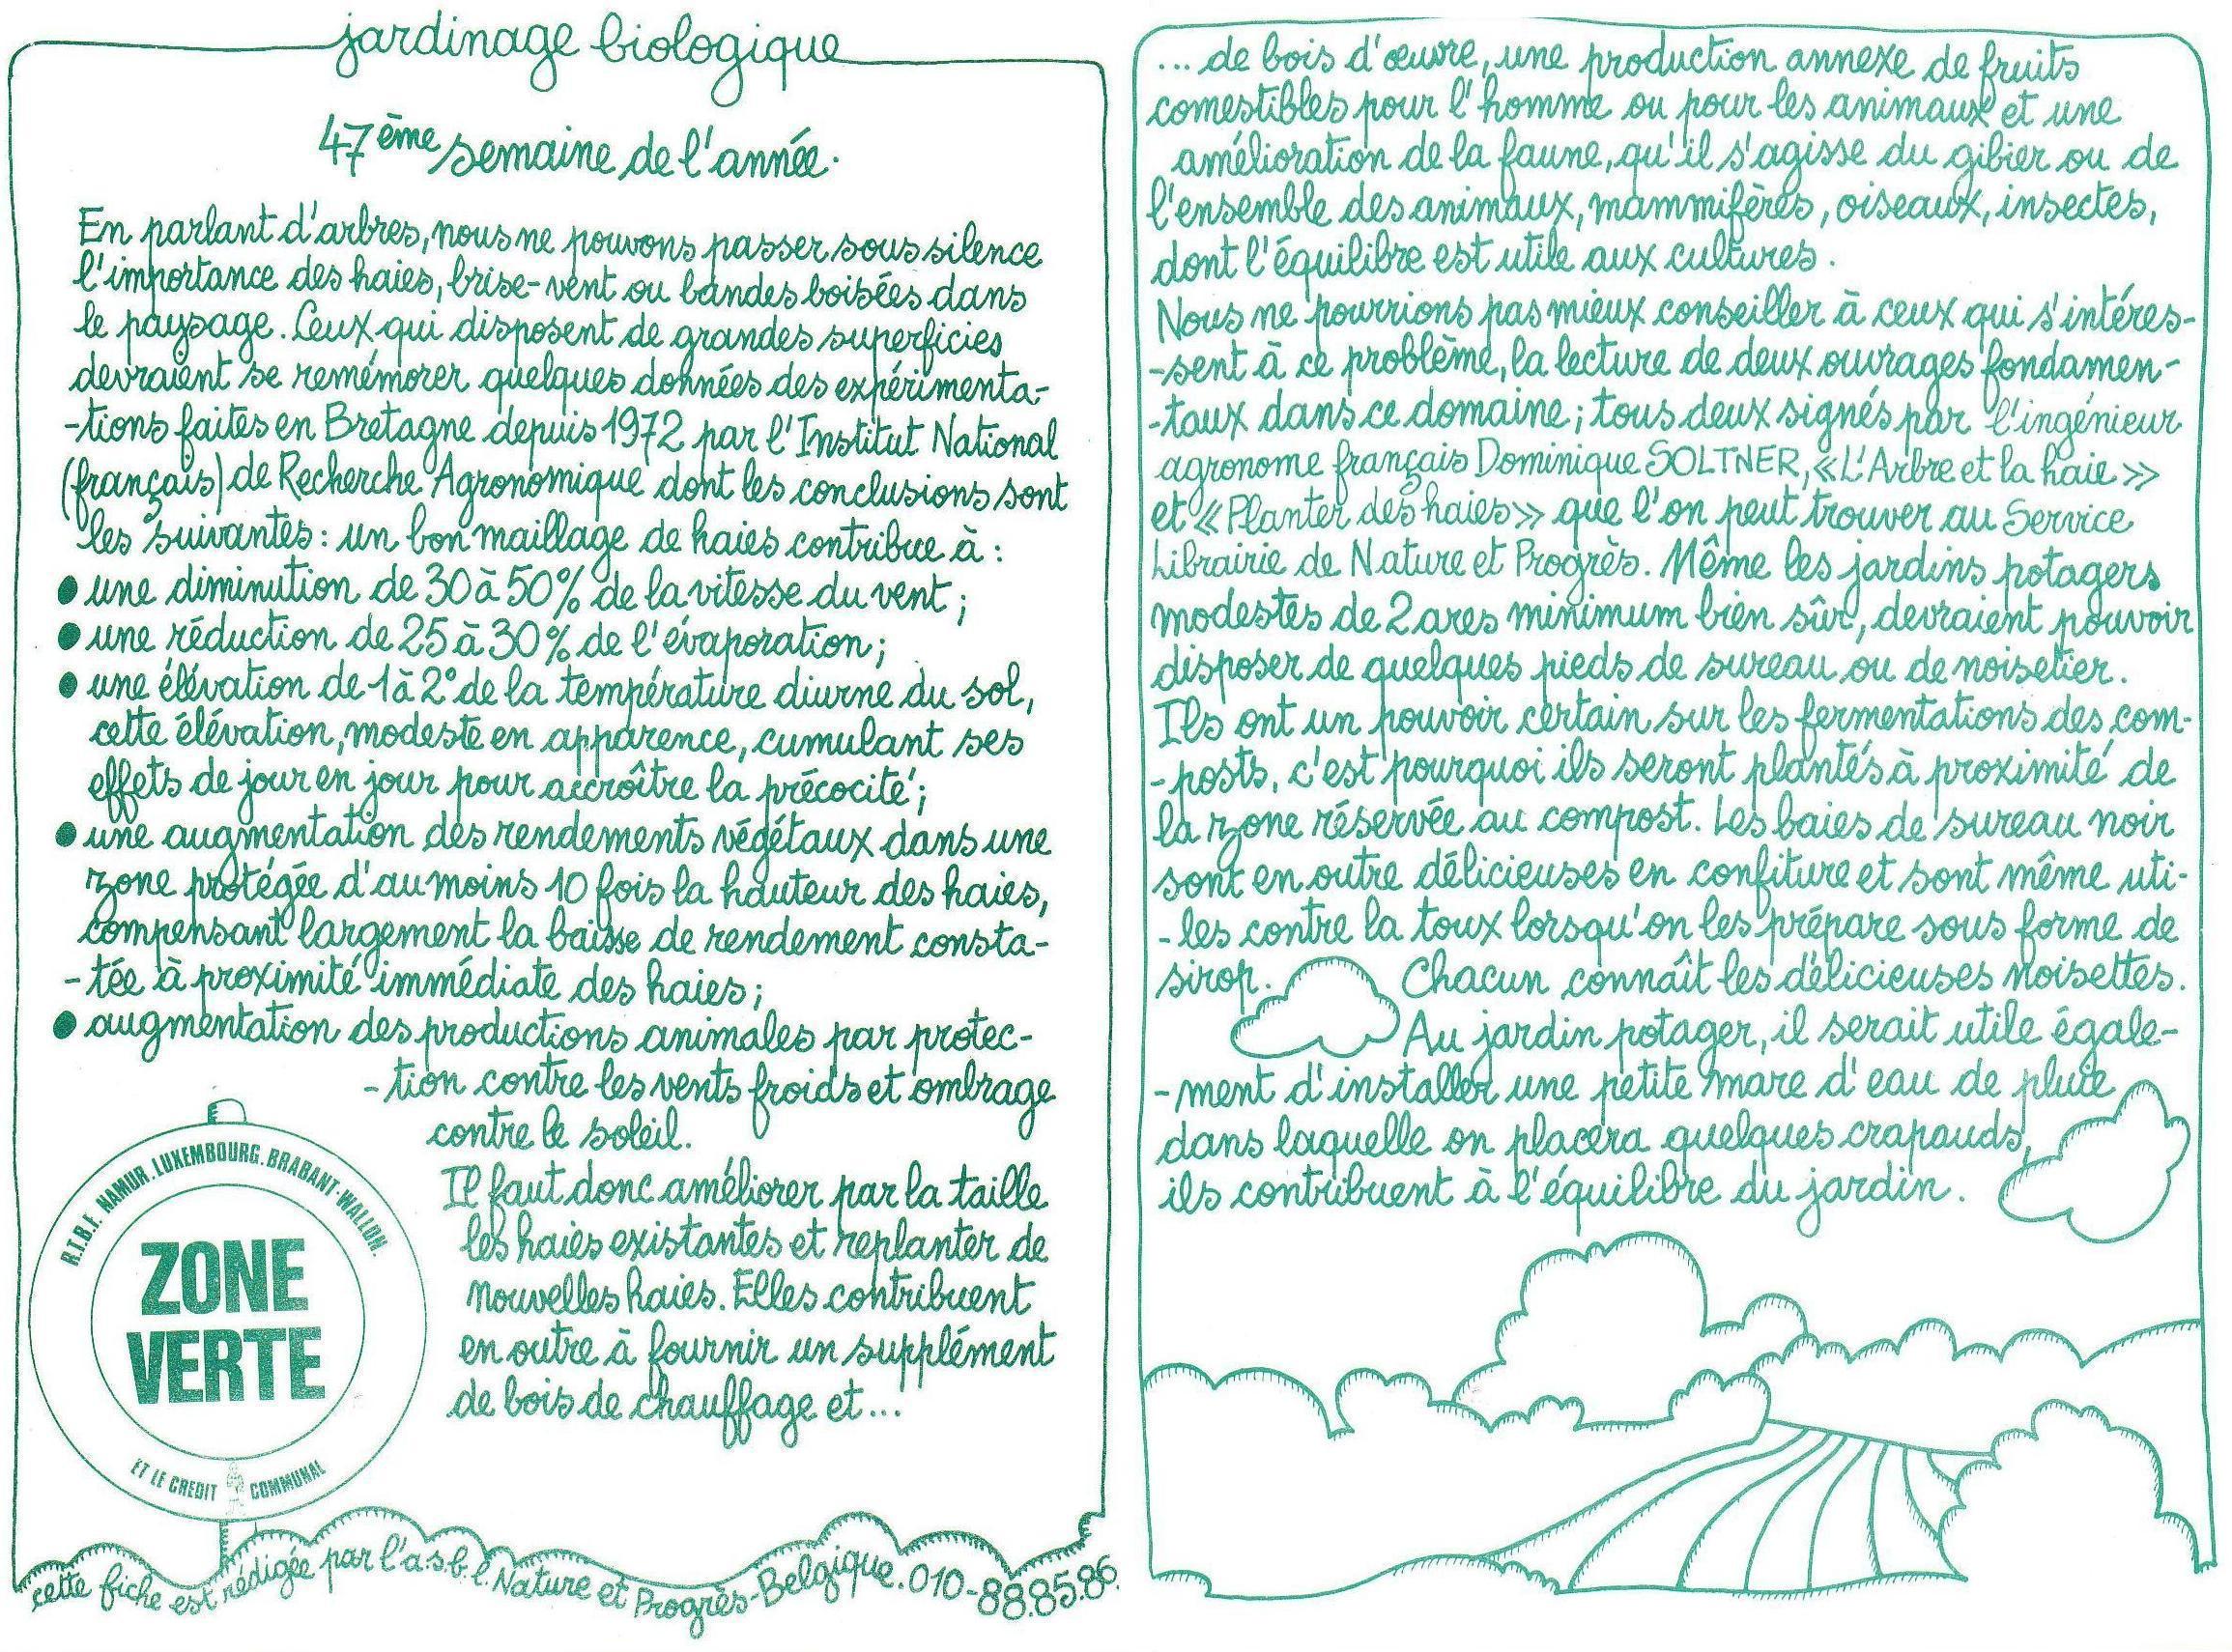 jardinage biologique
47ème semaine de l'année.
En parlant d'arbres, nous ne pouvons passer sous silence
l'importance des haies, brise-vent ou bandes boisées dans
le paysage. Ceux qui disposent de grandes superficies
devraient se remémorer quelques données des expérimenta-
-tions faites en Bretagne depuis 1972 par l'Institut National
(français) de Recherche Agronomique dont les conclusions sont
les suivantes : un bon maillage de haies contribue à :
● une diminution de 30 à 50% de la vitesse du vent ;
● une réduction de 25 à 30% de l'évaporation ;
● une élévation de 1 à 2° de la température diurne du sol,
cette élévation, modeste en apparence, cumulant ses
effets de jour en jour pour accroître la précocité ;
● une augmentation des rendements végétaux dans une
zone protégée d'au moins 10 fois la hauteur des haies,
compensant largement la baisse de rendement consta-
-tée à proximité immédiate des haies ;
● augmentation des productions animales par protec-
-tion contre les vents froids et ombrage
contre le soleil.
Il faut donc améliorer par la taille
les haies existantes et replanter de
nouvelles haies. Elles contribuent
en outre à fournir un supplément
de bois de chauffage et...
R.T.B.F. NAMUR. LUXEMBOURG. BRABANT-WALLON.
ZONE
VERTE
ET LE CREDIT COMMUNAL
cette fiche est rédigée par l'a.s.b.l. Nature et Progrès-Belgique. 010-88.85.86.
... de bois d'œuvre, une production annexe de fruits
comestibles pour l'homme ou pour les animaux et une
amélioration de la faune, qu'il s'agisse du gibier ou de
l'ensemble des animaux, mammifères, oiseaux, insectes,
dont l'équilibre est utile aux cultures.
Nous ne pourrions pas mieux conseiller à ceux qui s'intéres-
-sent à ce problème, la lecture de deux ouvrages fondamen-
-taux dans ce domaine ; tous deux signés par l'ingénieur
agronome français Dominique SOLTNER, «L'Arbre et la haie»
et «Planter des haies» que l'on peut trouver au Service
Librairie de Nature et Progrès. Même les jardins potagers
modestes de 2 ares minimum bien sûr, devraient pouvoir
disposer de quelques pieds de sureau ou de noisetier.
Ils ont un pouvoir certain sur les fermentations des com-
-posts, c'est pourquoi ils seront plantés à proximité de
la zone réservée au compost. Les baies de sureau noir
sont en outre délicieuses en confiture et sont même uti-
-les contre la toux lorsqu'on les prépare sous forme de
sirop. Chacun connaît les délicieuses noisettes.
Au jardin potager, il serait utile égale-
-ment d'installer une petite mare d'eau de pluie
dans laquelle on placera quelques crapauds,
ils contribuent à l'équilibre du jardin.